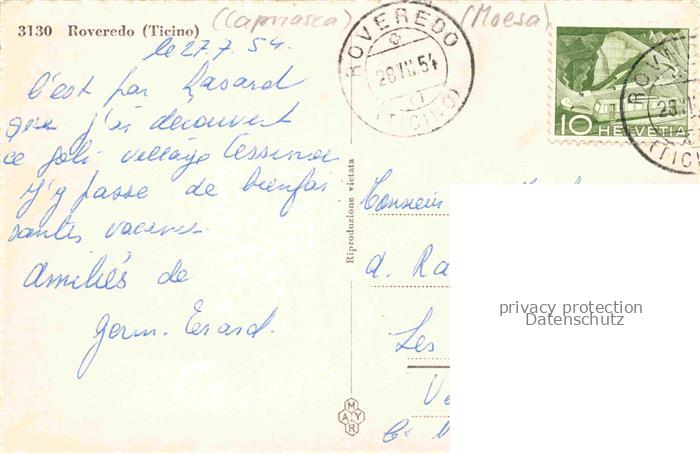 3130 Roveredo (Ticino)
(Capriasca) (Moesa)
le 27.7.54.
C'est par hasard
que j'ai découvert
ce joli village tessinois
J'y passe de bienfai
santes vacances.
Amitiés de
Germ. Erard.
Riproduzione vietata
MAYR
ROVEREDO
28.VII.54
(TICINO)
10 HELVETIA
ROV
28.VI
(TICINO)
Monsieur
A. Ra
Les
Ve
privacy protection
Datenschutz